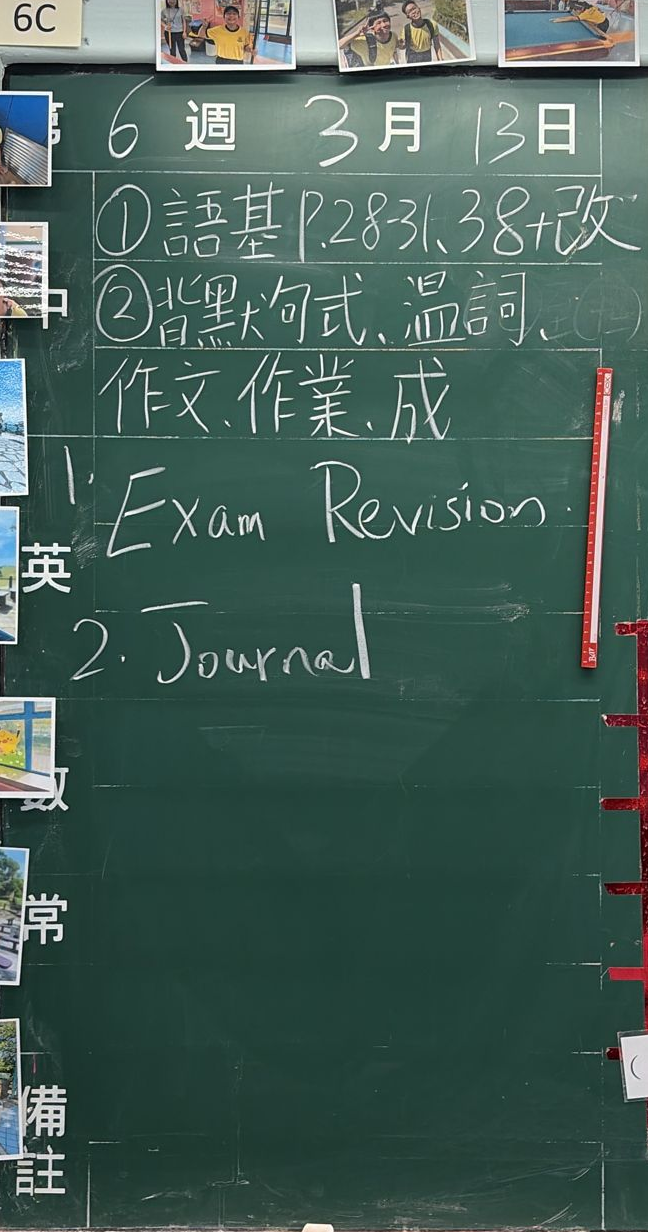 6C
6 週 3 月 13 日
① 語基 P.28-31、38+改
中
② 背默句式、温詞、
作文、作業、成
1. Exam Revision.
英
2. Journal
數
常
備
註